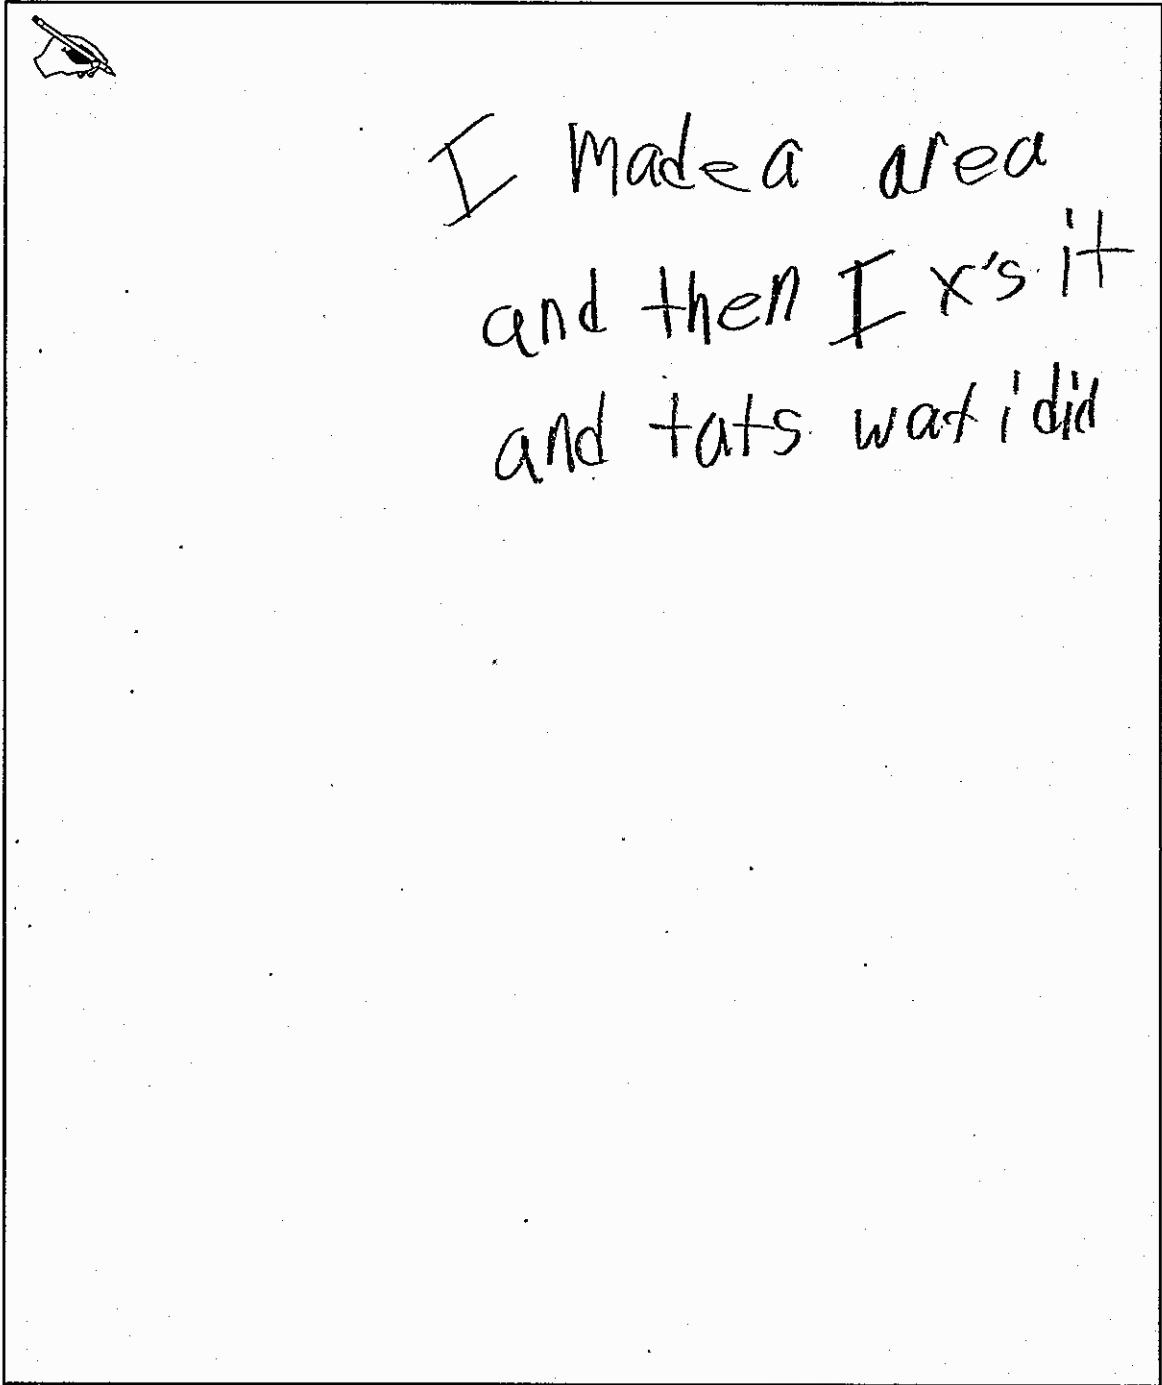 I made a area
and then I x's it
and tats wat i did